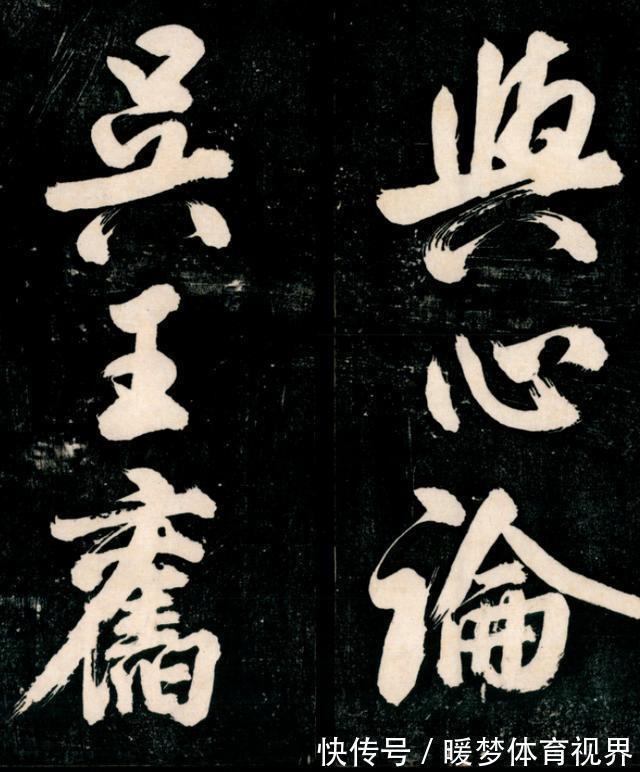 與心論
吳王舊
快传号 / 暖梦体育视界